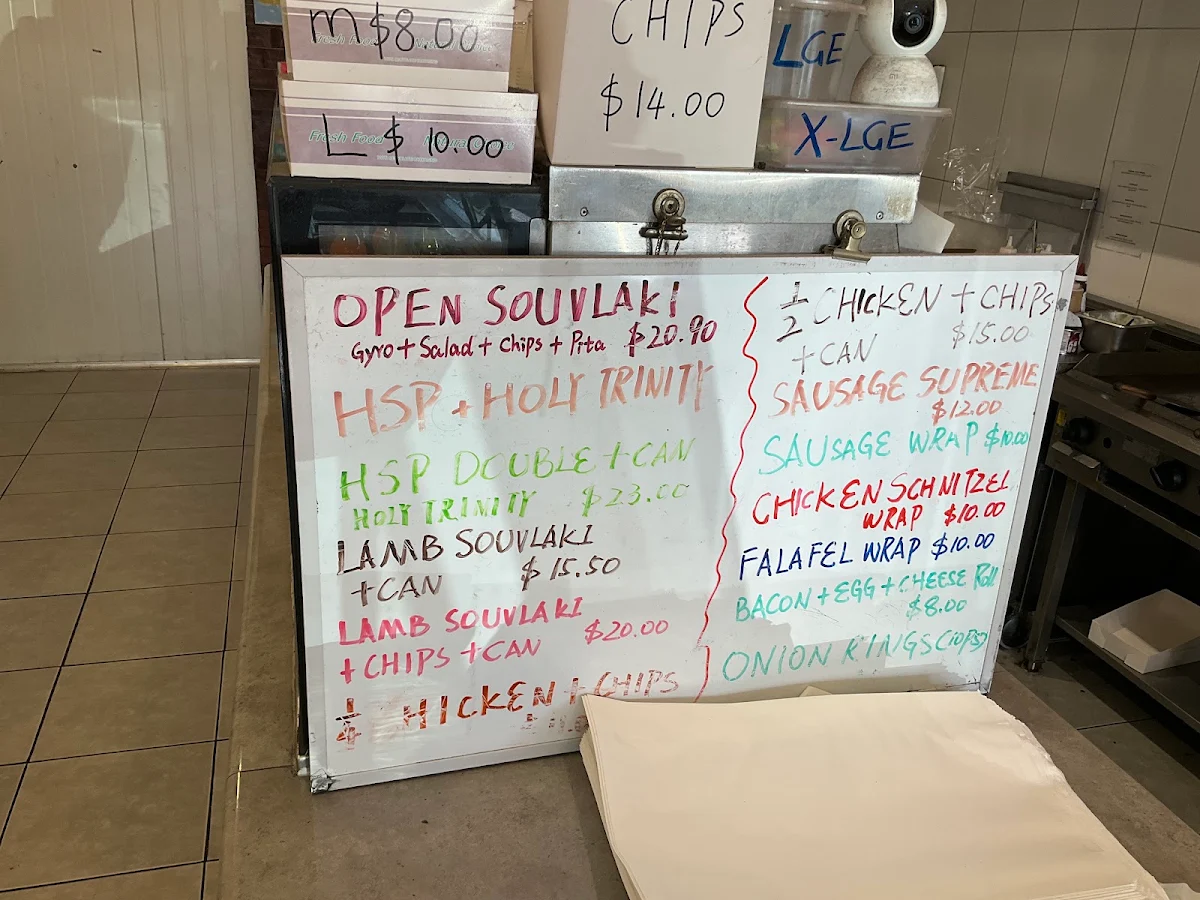 M $8.00
L $10.00
CHIPS
$14.00
LGE
X-LGE
OPEN SOUVLAKI
Gyro + Salad + Chips + Pita $20.90
HSP + HOLY TRINITY
HSP DOUBLE + CAN
HOLY TRINITY $23.00
LAMB SOUVLAKI
+ CAN $15.50
LAMB SOUVLAKI
+ CHIPS + CAN $20.00
1/4 HICKEN + CHIPS
1/2 CHICKEN + CHIPS
+ CAN $15.00
SAUSAGE SUPREME
$12.00
SAUSAGE WRAP $10.00
CHICKEN SCHNITZEL
WRAP $10.00
FALAFEL WRAP $10.00
BACON + EGG + CHEESE Roll
$8.00
ONION KINGS (10PS)